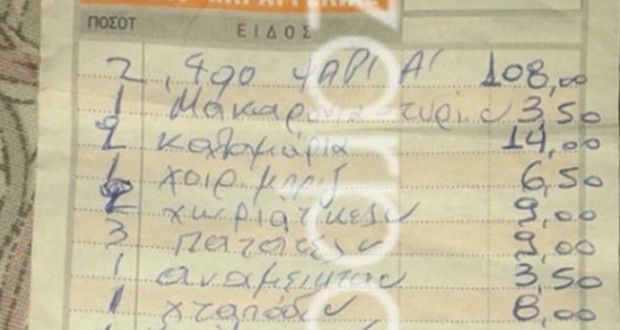 ΠΟΣΟΤ ΕΙΔΟΣ
2,490 ΨΑΡΙ Α' 108,00
1 Μακαρονια-τυρι 3,50
2 καλαμάρια 14,00
1 χοιρ. μπριζ 6,50
2 χωριάτικες 9,00
3 πατάτες 9,00
1 αναμεικτα 3,50
1 χταπόδι 8,00